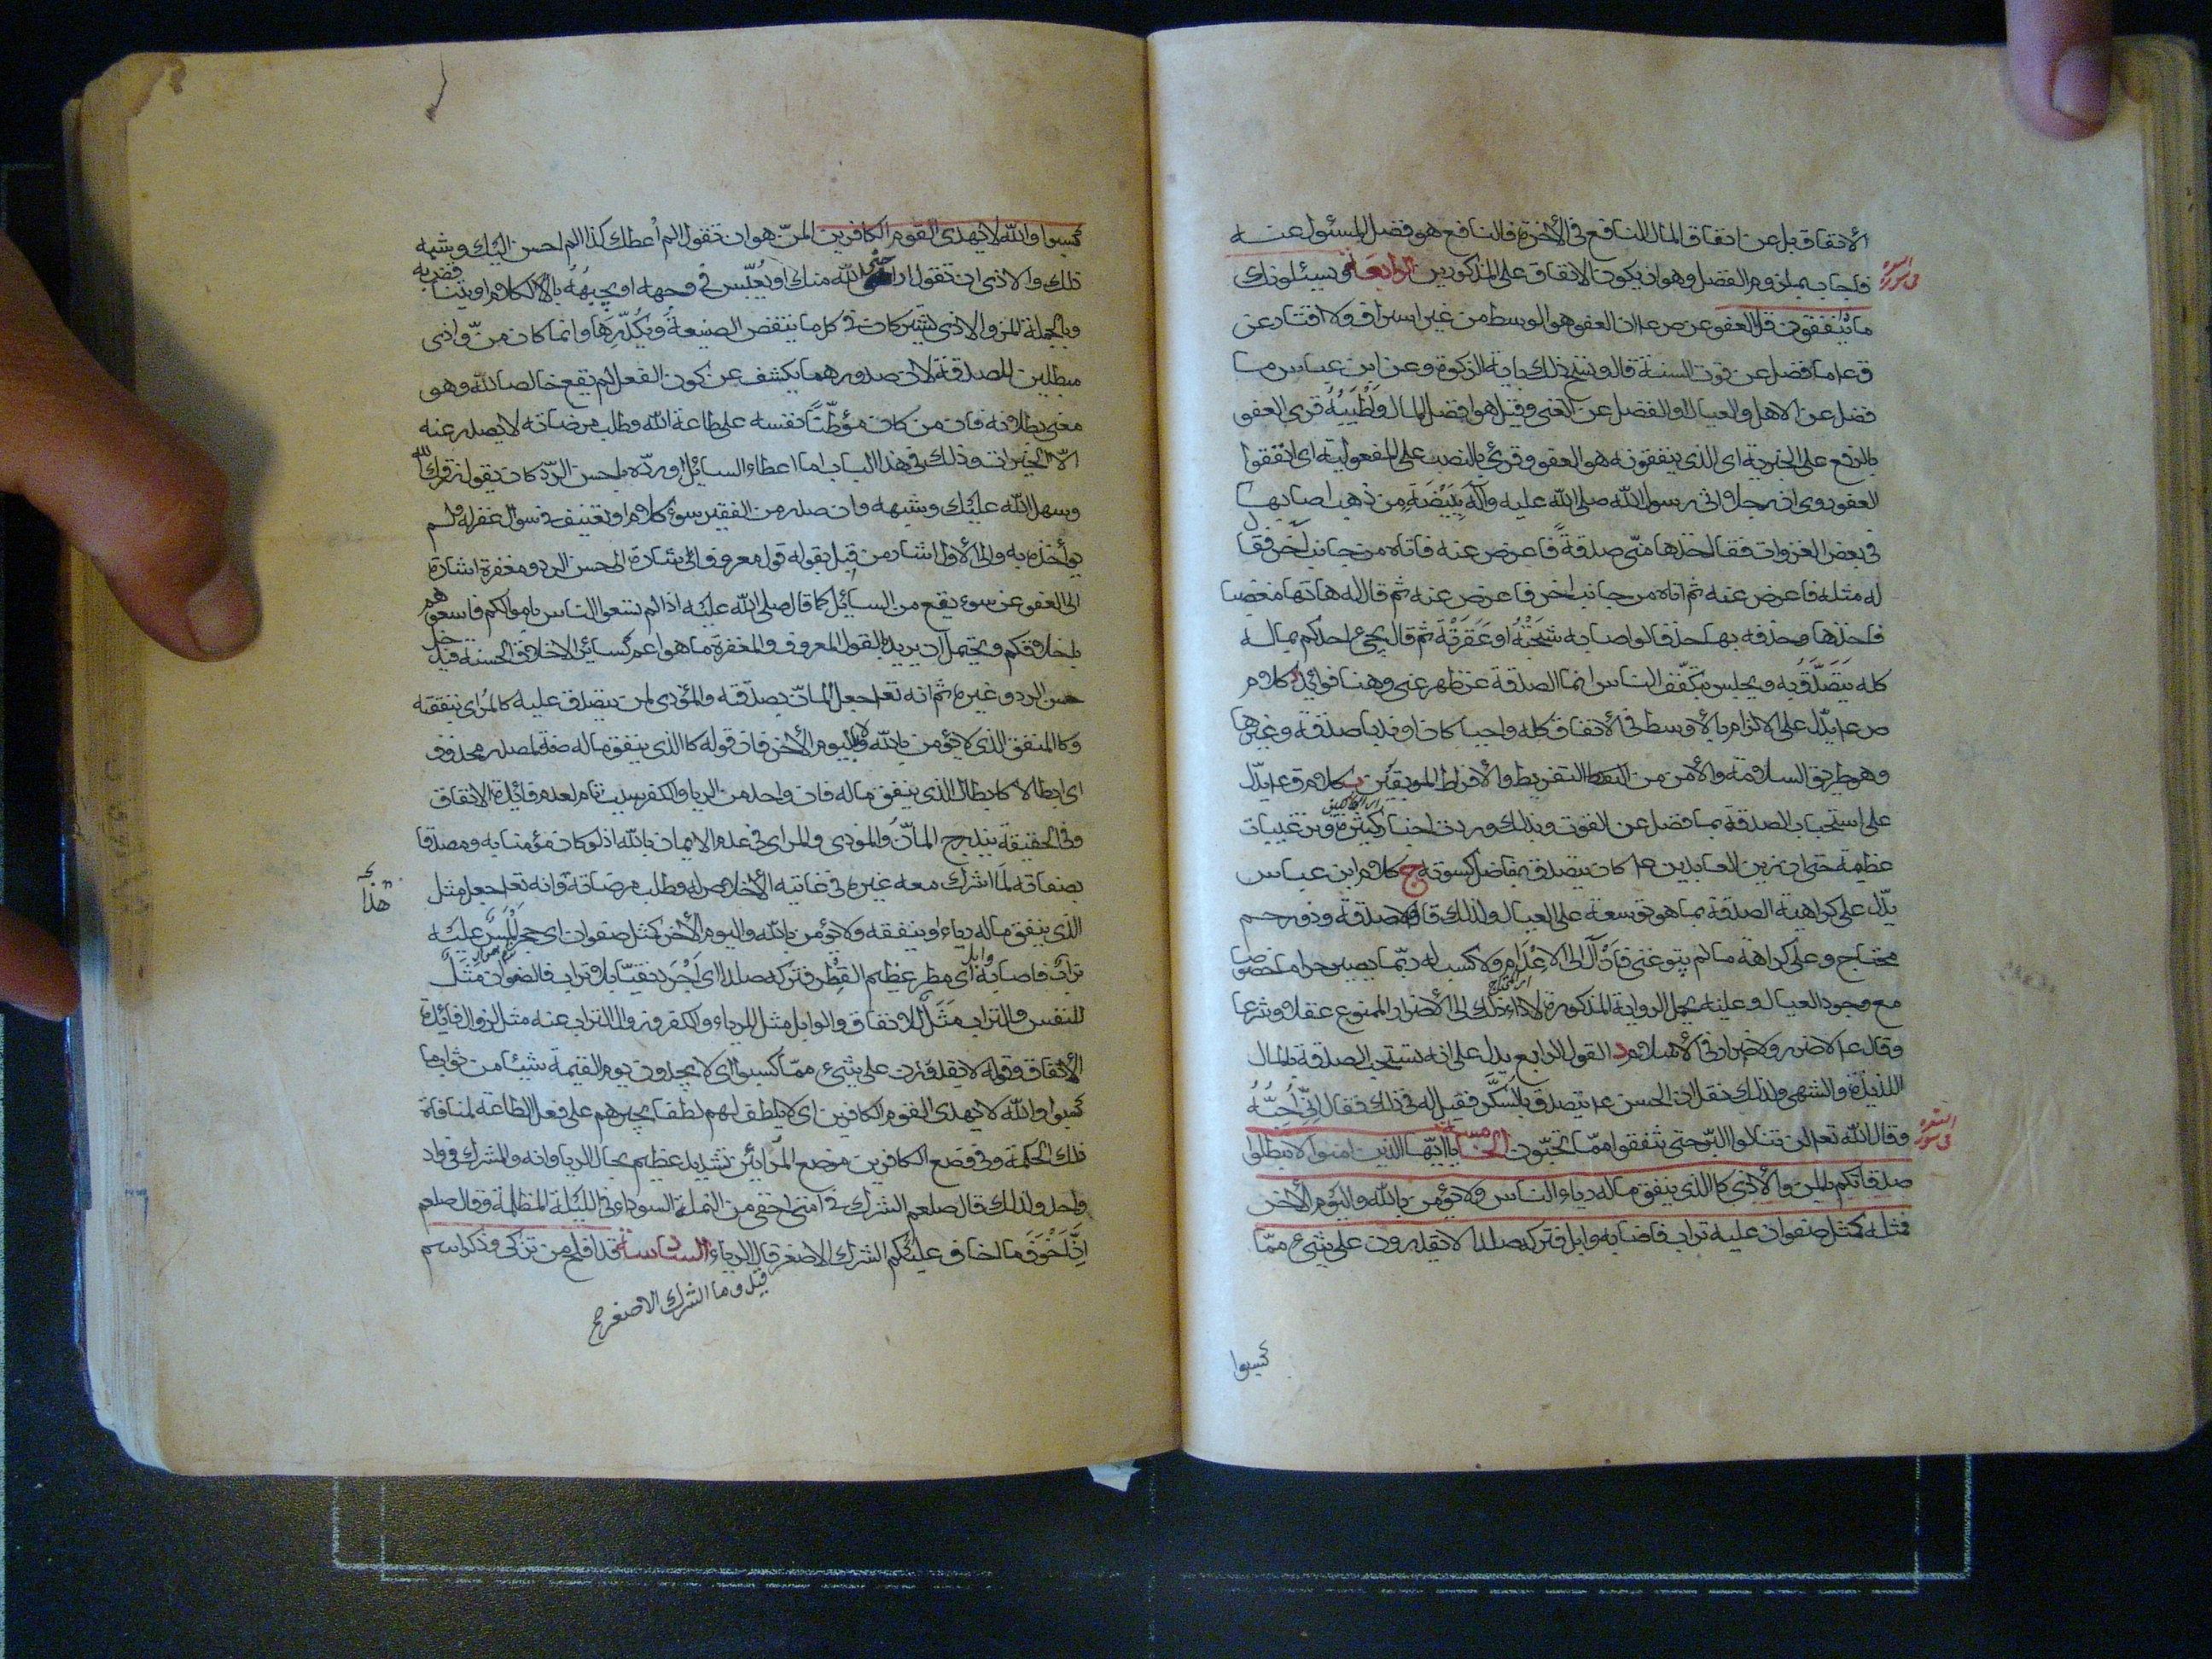 الانفاق بل عن انفاق المال النافع فى الأخرة فالنافع هو فضل المسئول عنه
فاجاب بملزوم الفضل وهو ان يكون الانفاق على المذكورين الرابعة ويسئلونك
فى سورة
ما ينفقون قل العفو عن ص ع ان العفو هو الوسط من غير اسراف ولا اقتار وعن
ق ع ما فضل عن قوت السنة قال ونسخ ذلك باية الزكوة وعن ابن عباس ما
فضل عن الاهل والعيال او الفضل عن الغنى وقيل هو افضل المال واطيبه قرئ العفو
بالرفع على الخبرية اى الذى ينفقونه هو العفو وقرئ بالنصب على المفعولية اى انفقوا
العفو روى ان رجلا اتى رسول الله صلى الله عليه وآله ببيضة من ذهب اصابها
فى بعض الغزوات فقال خذها منى صدقة فاعرض عنه فاتاه من جانب آخر فقال
له مثله فاعرض عنه ثم اتاه من جانب اخر فاعرض عنه ثم قال له هاتها مغضبا
فاخذها وحذفه بها حذفا لو اصابه شجته او عقرته ثم قال يجئ احدكم بماله
كله يتصدق به ويجلس يتكفف الناس انما الصدقة عن ظهر غنى وهنا فوائد ا كلام
ص ع يدل على الالزام بالأوسط فى الأنفاق كله واجبا كان او ندبا صدقة وغيرها
وهو طريق السلامة والأمن من التفريط والأفراط الموبقين ب كلام ق ع يدل
على استحباب الصدقة بما فضل عن القوت وبذلك وردت اخبار كثيرة وترغيبات
عظيمة حتى ان زين العابدين ع كان يتصدق بفاضل كسوته ج كلام ابن عباس
يدل على كراهية الصدقة بما هو توسعة على العيال ولذلك قال لا صدقة وذو رحم
محتاج وعلى كراهة ما لم يبق غنى فاذ آل الى الاعدام ولا كسب له ربما يصير حراما خصوصا
مع وجود العيال وعليه يحمل الرواية المذكورة لاداء ذلك الى الأضرار الممنوع عقلا وشرعا
وقال ع لا ضرر ولا ضرار فى الأسلام د القول الرابع يدل على انه تستحب الصدقة بالمال
اللذيذة والشهى ولذلك نقل ان الحسن ع يتصدق بالسكر فقيل له فى ذلك فقال انى احبه
وقال الله تعالى لن تنالوا البر حتى تنفقوا مما تحبون الخامسة يا ايها الذين امنوا لا تبطلوا
فى سورة البقرة
صدقاتكم بالمن والأذى كالذى ينفق ماله رياء الناس ولا يؤمن بالله واليوم الأخر
فمثله كمثل صفوان عليه تراب فاصابه وابل فتركه صلدا لا يقدرون على شئ مما
كسبوا
كسبوا والله لا يهدى القوم الكافرين المن هو ان تقول الم أعطك كذا الم احسن اليك وشبه
ذلك والاذى ان تقول اراحنى الله منك او يعبس فى وجهه او يجبهه بالكلام او يتنا
وبالجملة المن والاذى يشتركان فى كل ما ينقض الصنيعة ويكدرها وانما كان من واذى
مبطلين للصدقة لان صدورهما يكشف عن كون الفعل لم يقع خالصا لله وهو
معنى بطلانه فان من كان مؤطنا نفسه على طاعة الله وطلب مرضاته لا يصدر عنه
الا الخيرات وذلك فى هذا الباب اما اعطاء السائل او رده باحسن الرد كان يقول رزقك الله
وسهل الله عليك وشبهه وان صدر من الفقير سوء كلام او تعنيف فى سؤال غفر له ولم
يؤاخذه به والى الأول اشار من قبل بقوله قول معروف اشارة الى حسن الرد ومغفرة اشارة
الى العفو عن سوء يقع من السائل كما قال صلى الله عليه اذا لم تسعوا الناس باموالكم فاسعوهم
باخلاقكم ويحتمل ان يريد بالقول المعروف والمغفرة ما هو اعم كسائر الاخلاق الحسنة فيدخل
حسن الرد وغيره ثم انه تعالى جعل المان بصدقته والمؤذى لمن يتصدق عليه كالمراى بنفقته
وكالمنفق الذى لا يؤمن بالله ولا باليوم الأخر فان قوله كالذى ينفق ماله صفة لمصدر محذوف
اى ابطالا كابطال الذى ينفق ماله فان واحد من الريا والكفر سبب تام لعدم فائدة الانفاق
وفى الحقيقة يندرج المان والمؤذى والمراى فى عدم الايمان بالله اذ لو كان مؤمنا به ومصدقا
بصفاته لما اشرك معه غيره فى غاتيه الأخلاص له وطلب مرضاته وانه تعالى جعل مثل
هذا
الذى ينفق ماله رياء او ينفقه ولا يؤمن بالله واليوم الأخر كمثل صفوان اى حجر املس عليه
تراب فاصابه وابل اى مطر عظيم القطر فتركه صلدا اى اجرد نقيا بلا تراب فالصفوان مثل
للنفس والتراب مثل للانفاق والوابل مثل للرياء والكفر وزوال التراب عنه مثل لزوال فائدة
الأنفاق وقوله لا يقدرون على شئ مما كسبوا اى لا يجدون يوم القيمة شيئا من ثواب ما
كسبوا والله لا يهدى القوم الكافرين اى لا يلطف بهم لطفا يجبرهم على فعل الطاعة لمنافاة
ذلك الحكمة وفى وضع الكافرين موضع المرائين تشديد عظيم بحال الريا وانه والمشرك فى واد
واحد ولذلك قال صلعم الشرك فى امتى اخفى من النملة السوداء فى الليلة المظلمة وقال صلعم
ان اخوف ما اخاف عليكم الشرك الاصغر قال الرياء السادسة قد افلح من تزكى وذكر اسم
قيل وما الشرك الاصغر صح